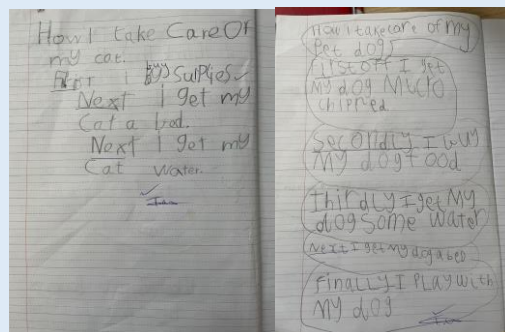 How I take Care Of
my cat.
First I buy Suplies
Next I get my
Cat a bed.
Next I get my
Cat water.
How I take care of my
Pet dogs
First off I get
My dog Micro
chipped
Secondly I buy
My dog Food
Thirdly I get My
dog Some water
Next I get my dog a bed
Finally I Play with
My dog